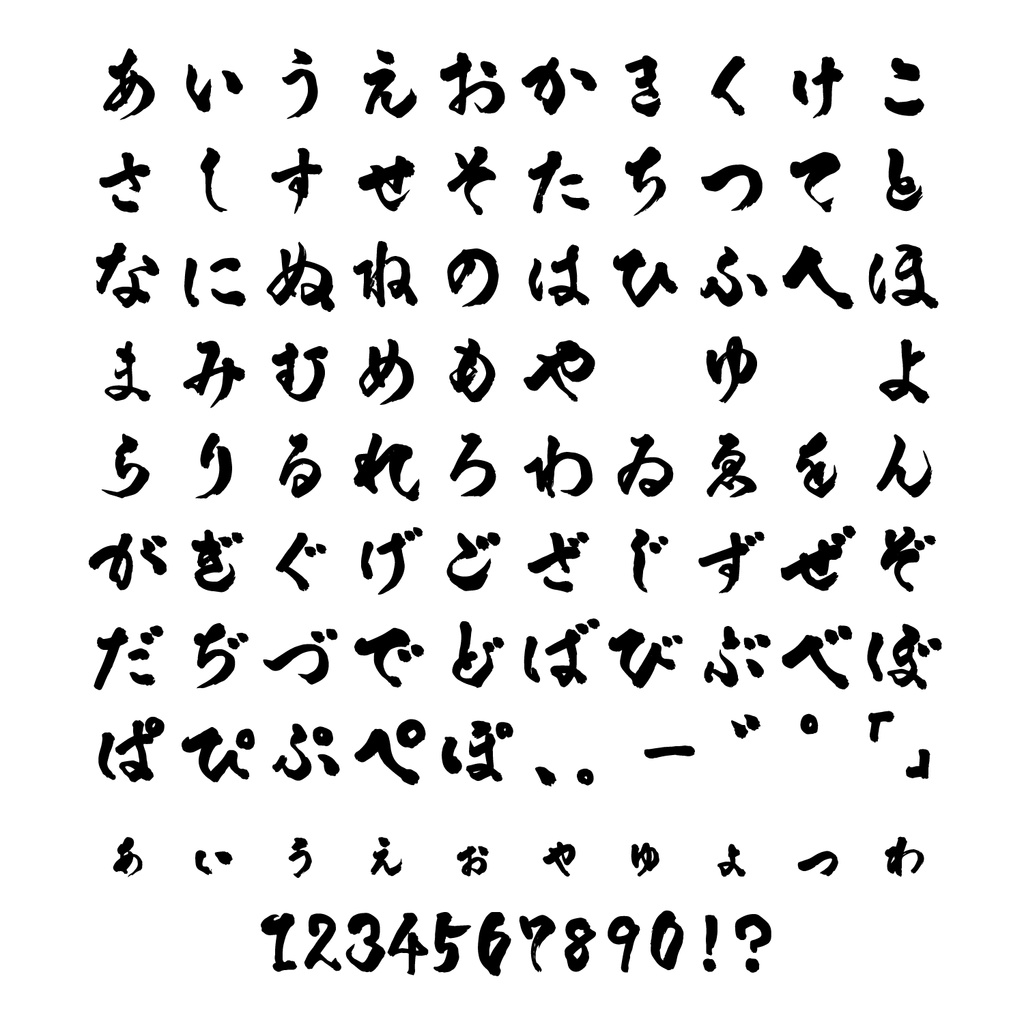 あいうえおかきくけこ
さしすせそたちつてと
なにぬねのはひふへほ
まみむめもや ゆ よ
らりるれろわゐゑをん
がぎぐげござじずぜぞ
だぢづでどばびぶべぼ
ぱぴぷぺぽ、。ー゛゜「」
ぁぃぅぇぉゃゅょっゎ
1234567890!?